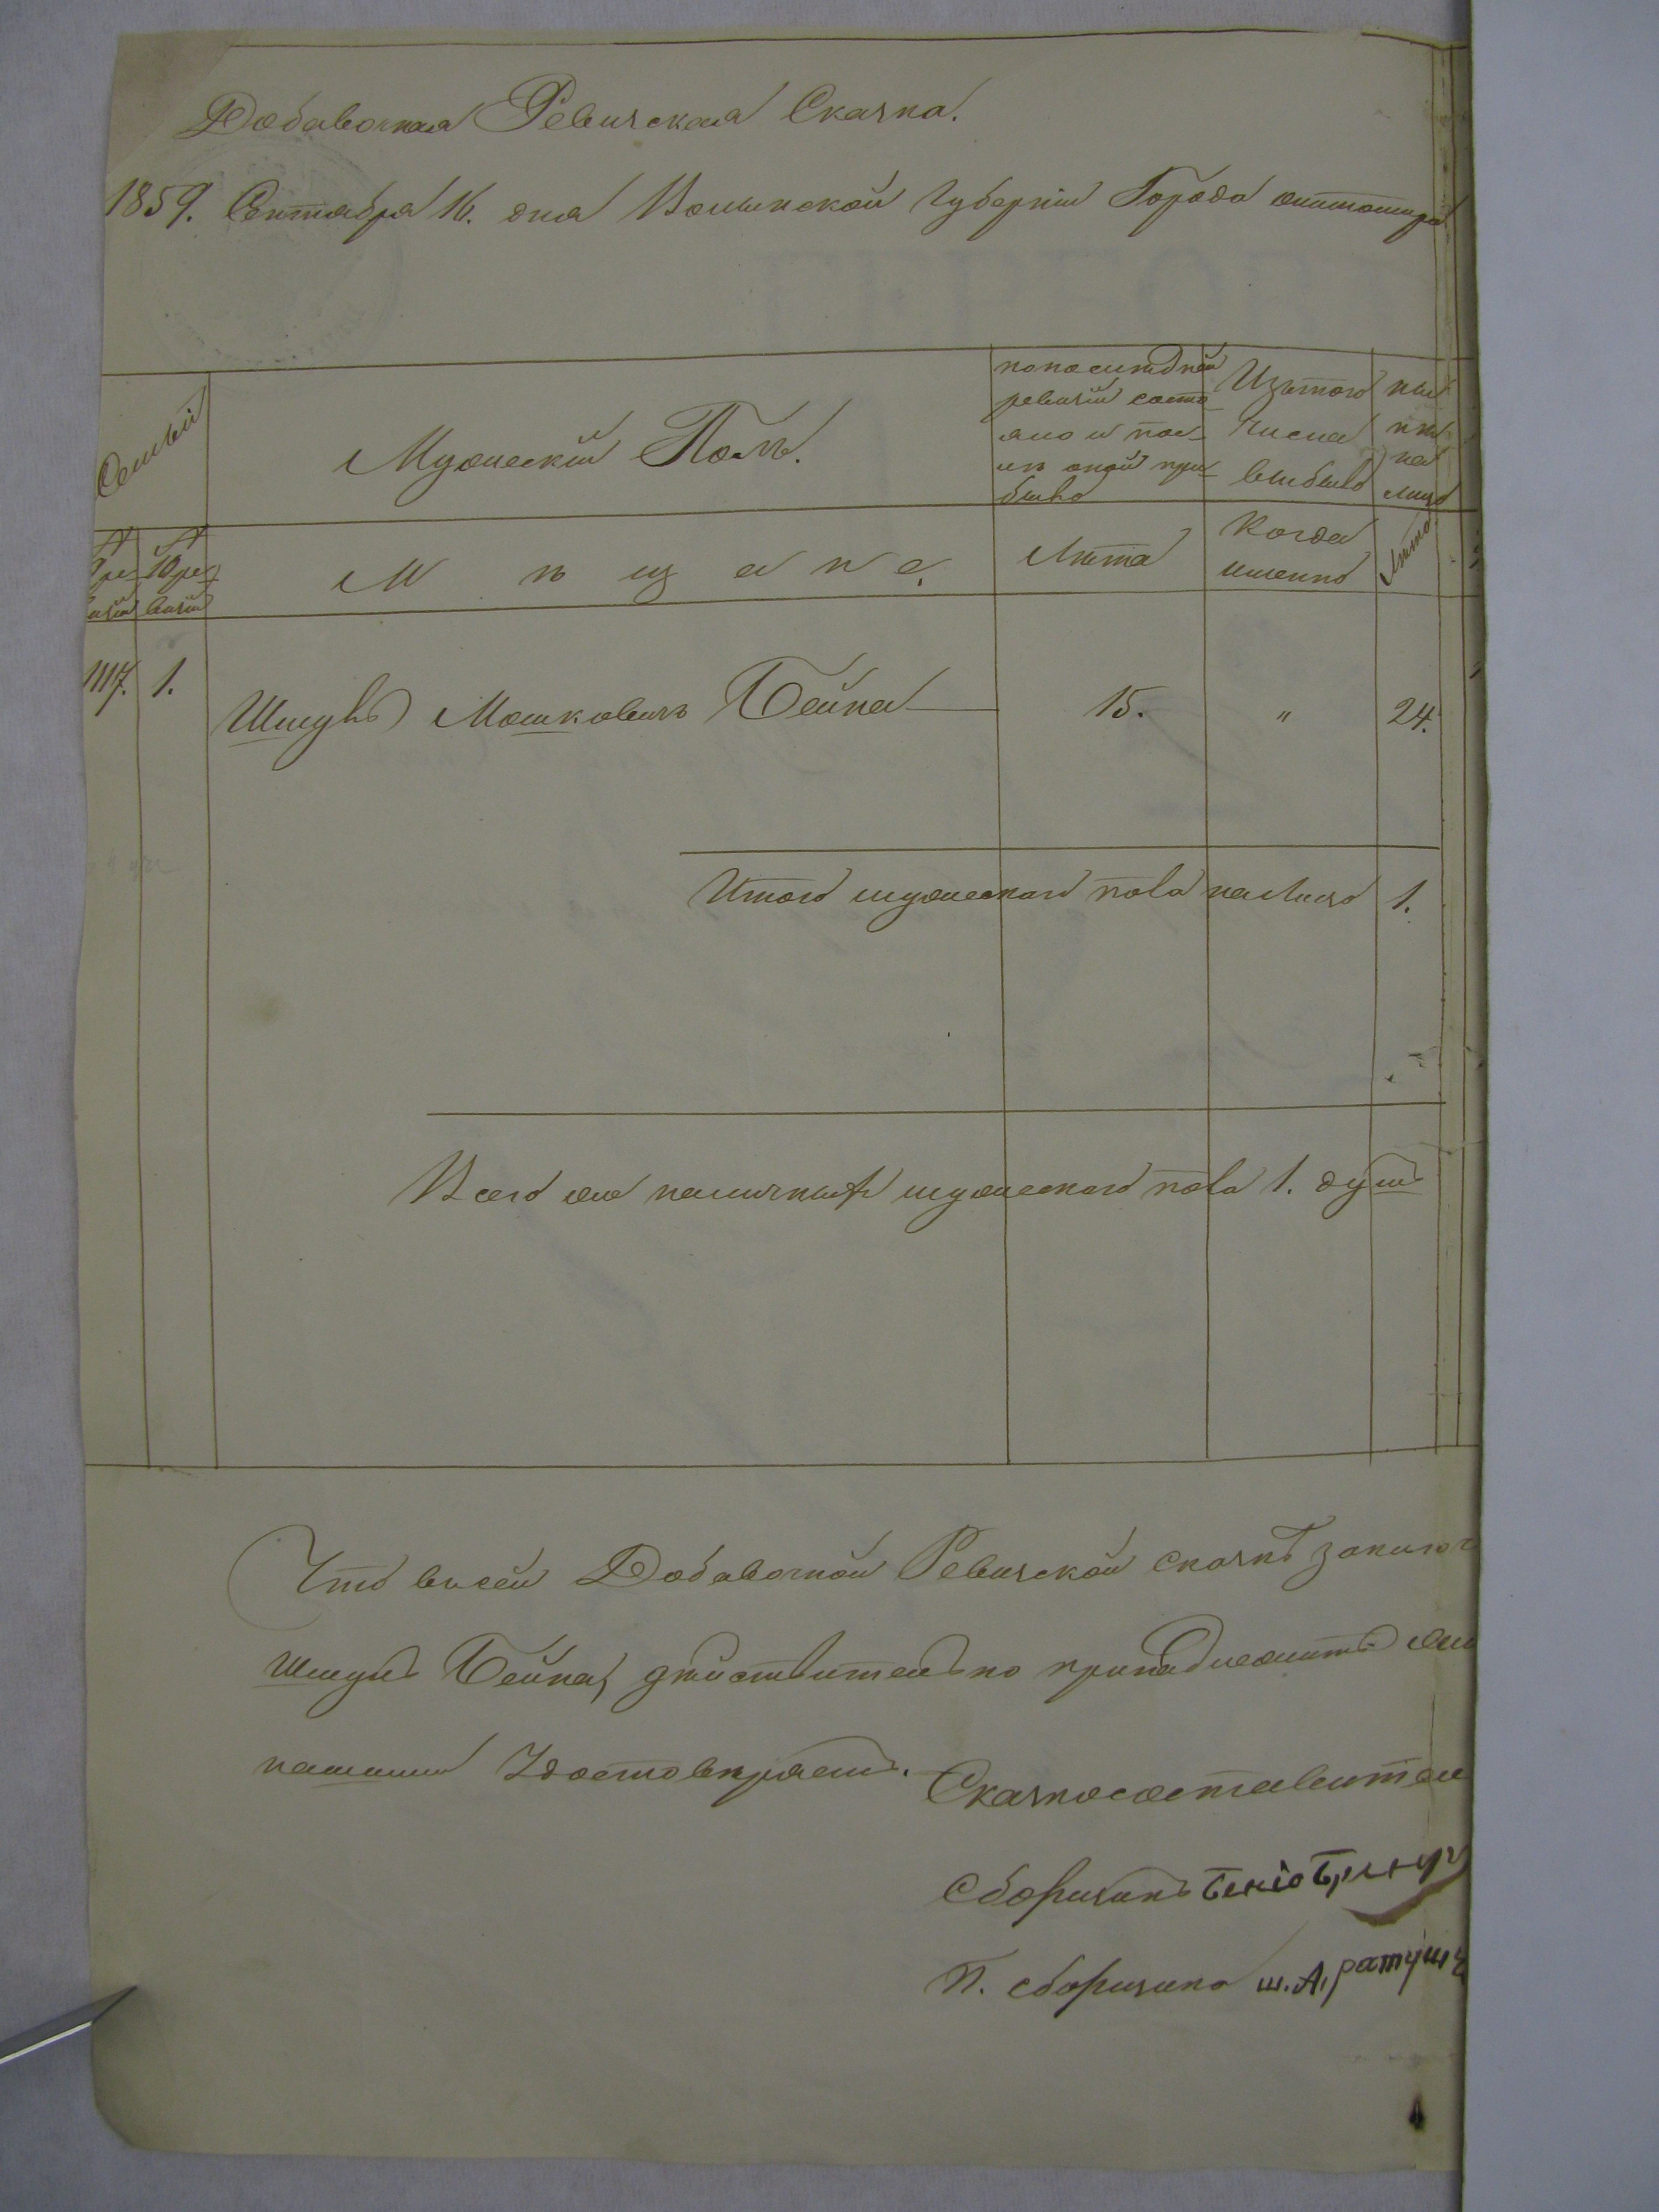 Добавочная Ревизская Сказка.
1859. Сентября 16. дня Волынской Губерніи Города Житомира
Семьи
Мужескій Полъ.
по последней
ревизіи состо
яло и пос-
лѣ оной при
было
Изътого
числа
выбыло
ны
нѣ
на
лицо
№ 9 ре
визіи
№ 10 ре
визіи
М ѣ щ а н е.
Лѣта
Когда
именно
Лѣта
1117. 1. Шмуль Мошковичъ Бейна 15. " 24.
Итого мужескаго пола налицо 1.
Всего же наличныхъ мужескаго пола 1. душъ
Что въсей Добавочной Ревизской сказкѣ заключ
Шмуль Бейна, дѣйствительно принадлежитъ
Удостовѣряемъ.
Сказкосоставител
Сборщикъ
П. сборщика Ш. А. Ратуш